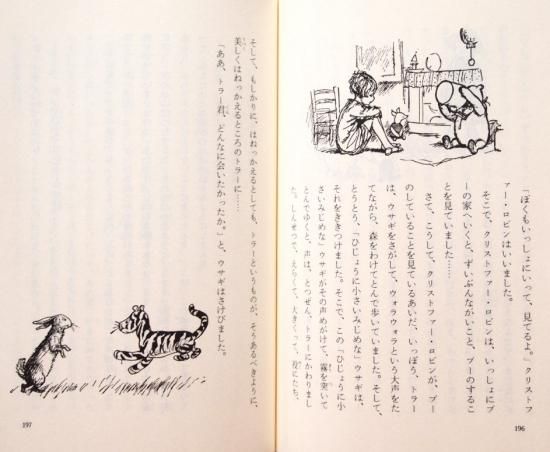 「ぼくもいっしょにいって、見てるよ。」クリストフ
ァー・ロビンはいいました。
そこで、クリストファー・ロビンは、いっしょにプ
ーの家へいくと、ずいぶんながいこと、プーのするこ
とを見ていました……
さて、こうして、クリストファー・ロビンが、プー
のしていることを見ているあいだ、いっぽう、トラー
は、ウサギをさがして、ウォラウォラという大声をた
てながら、森をわけてとんで歩いていました。そして、
とうとう、「ひじょうに小さいみじめな」ウサギは、
それをききつけました。そこで、この「ひじょうに小
さいみじめな」ウサギがその声めがけて、霧を突いて
とんでゆくと、声は、とつぜん、トラーにかわりまし
た。しんせつで、えらくて、大きくって、役にたち、
196
そして、もしかりに、はねっかえるとしても、トラーというものが、そうあるべきように、
美しくはねっかえるところのトラーに……
「ああ、トラー君、どんなに会いたかったか。」と、ウサギはさけびました。
197